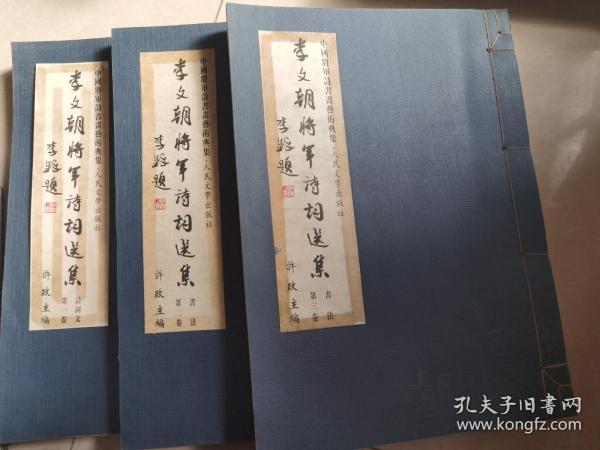 中國將軍詩書畫藝術典集·人民文學出版社
李文朝將軍詩詞選集
李鐸題
許政主編
詩詞文
第一卷
中國將軍詩書畫藝術典集·人民文學出版社
李文朝將軍詩詞選集
李鐸題
許政主編
書法
第二卷
中國將軍詩書畫藝術典集·人民文學出版社
李文朝將軍詩詞選集
李鐸題
許政主編
書法
第三卷
孔夫子旧书网
www.kongfz.com